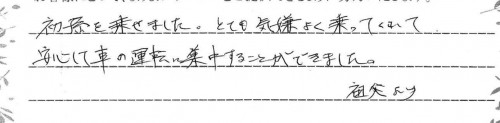 初孫を乗せました。とても気嫌よく乗ってくれて
安心して車の運転に集中することができました。
祖父より